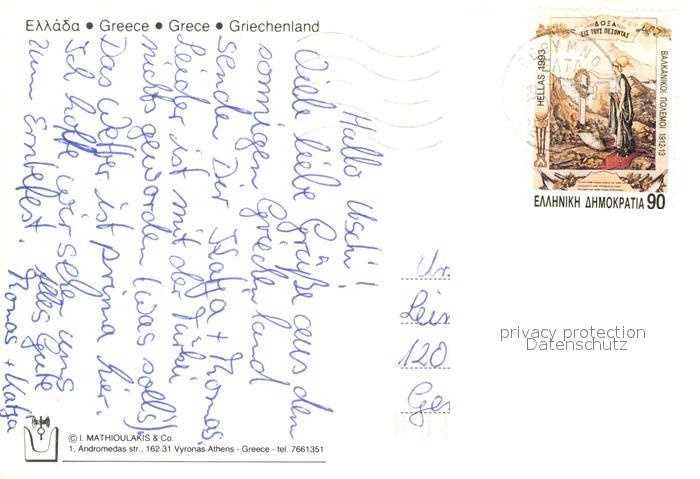 Ελλάδα • Greece • Grece • Griechenland
Hallo Uschi!
Viele liebe Grüße aus dem
sonnigen Griechenland
senden Dir Katja + Thomas.
Leider ist mit der Türkei
nichts geworden (was solls)!
Das Wetter ist prima hier.
Ich hoffe wir sehen uns
zum Erntefest. Alles Gute
Thomas + Katja
© I. MATHIOULAKIS & Co.
1, Andromedas str., 162 31 Vyronas Athens - Greece - tel. 7661351
ΔΟΞΑ
ΕΙΣ ΤΟΥΣ ΠΕΣΟΝΤΑΣ
HELLAS 1993
ΒΑΛΚΑΝΙΚΟΙ ΠΟΛΕΜΟΙ 1912-13
ΕΛΛΗΝΙΚΗ ΔΗΜΟΚΡΑΤΙΑ 90
120
Ger
privacy protection
Datenschutz